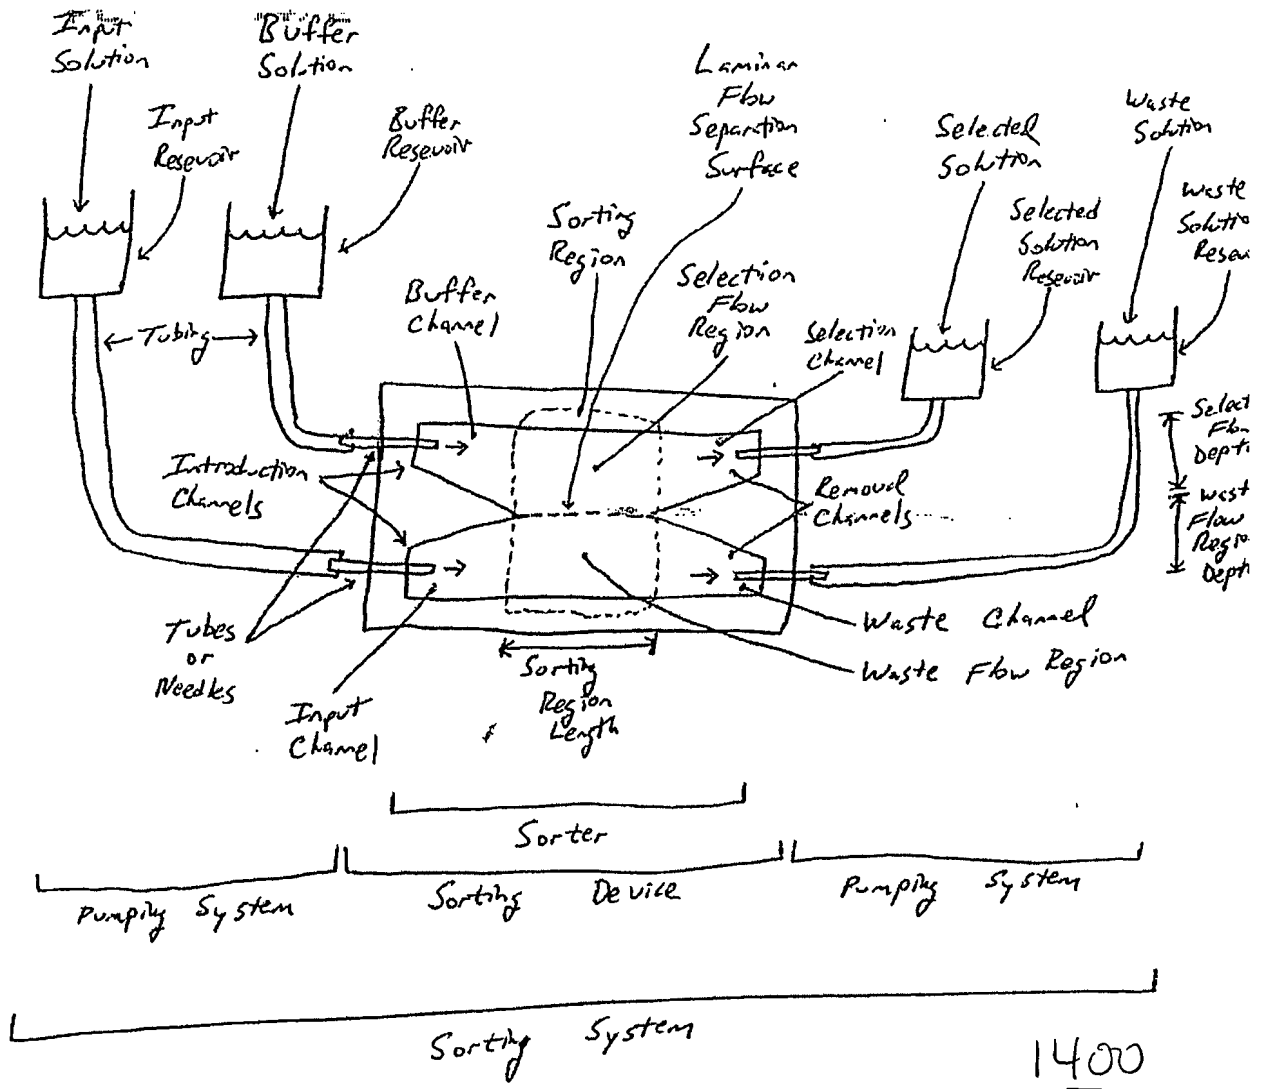 Input
Solution
Buffer
Solution
Input
Resevoir
Buffer
Resevoir
Laminar
Flow
Separation
Surface
Selected
Solution
Waste
Solution
Selected
Solution
Resevoir
Waste
Solutio
Resev
Sorting
Region
Selection
Flow
Region
Buffer
Channel
Tubing
Selection
Channel
Select
Flow
Dept
Wast
Flow
Regio
Dept
Introduction
Channels
Removal
Channels
Tubes
or
Needles
Input
Channel
Sorting
Region
Length
Waste Channel
Waste Flow Region
Sorter
Pumping System
Sorting Device
Pumping System
Sorting System
1400